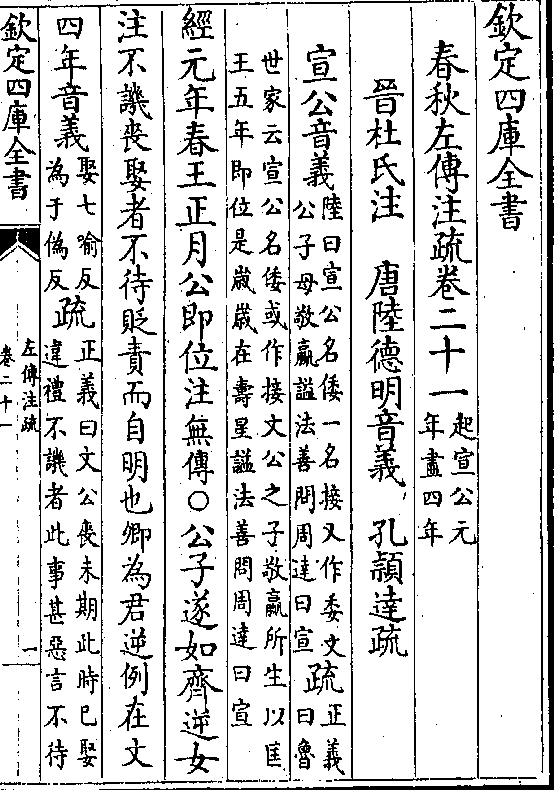 欽定四庫全書
春秋左傳注疏卷二十一起宣公元年盡四年
晉杜氏注 唐陸德明音義 孔穎達疏
宣公音義陸曰宣公名倭一名接又作委文公子母敬嬴謚法善問周達曰宣疏正義曰魯
世家云宣公名倭或作接文公之子敬嬴所生以匡王五年即位是歲歲在壽星謚法善問周達曰宣
經元年春王正月公即位注無傳○公子遂如齊逆女
注不譏喪娶者不待貶責而自明也卿為君逆例在文
四年音義娶七喻反為于偽反疏正義曰文公喪未期此時已娶違禮不譏者此事甚惡言不待
欽定四庫全書
左傳注疏
卷二十一
一